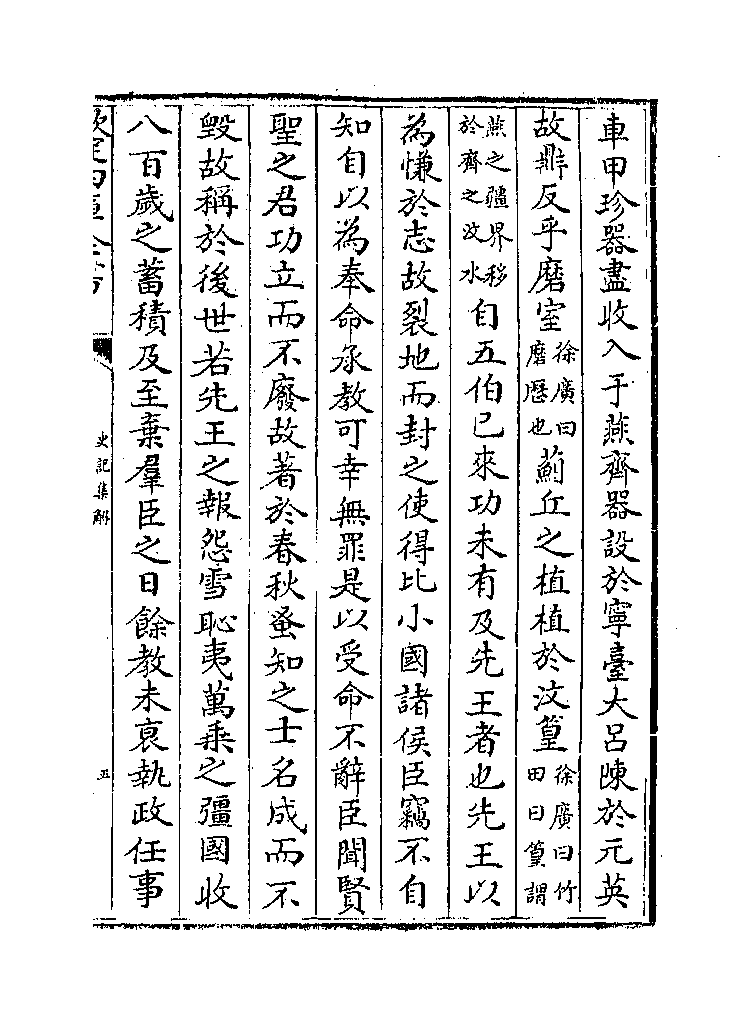 車甲珍器盡收入于燕齊器設於寧臺大呂陳於元英
故鼎反乎磨室徐廣曰磨歴也薊丘之植植於汶篁徐廣曰竹田曰篁謂
燕之疆界移於齊之汶水自五伯已來功未有及先王者也先王以
為慊於志故裂地而封之使得比小國諸侯臣竊不自
知自以為奉命承教可幸無罪是以受命不辭臣聞賢
聖之君功立而不廢故著於春秋蚤知之士名成而不
毀故稱於後世若先王之報怨雪恥夷萬乘之彊國收
八百歲之蓄積及至棄羣臣之日餘教未衰執政任事
史記集解
五